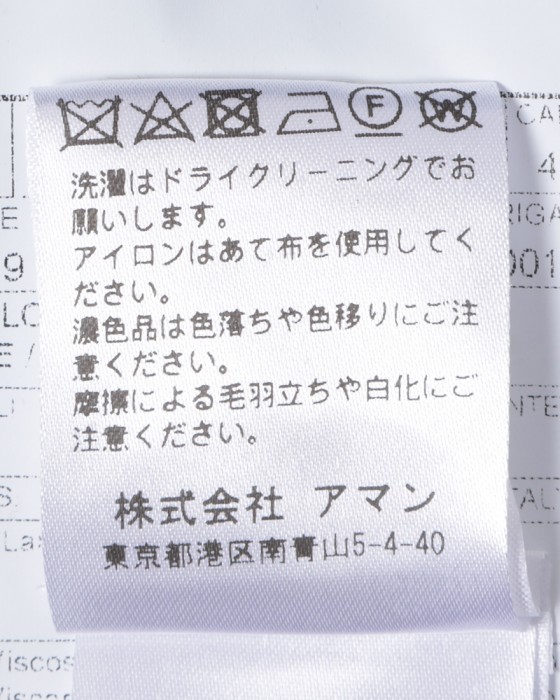 F W
洗濯はドライクリーニングでお
願いします。
アイロンはあて布を使用してく
ださい。
濃色品は色落ちや色移りにご注
意ください。
摩擦による毛羽立ちや白化にご
注意ください。
株式会社 アマン
東京都港区南青山5-4-40